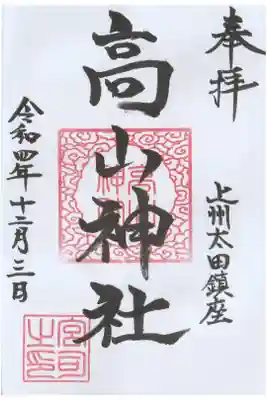 奉拝
上州太田鎮座
高山神社
令和四年十二月三日